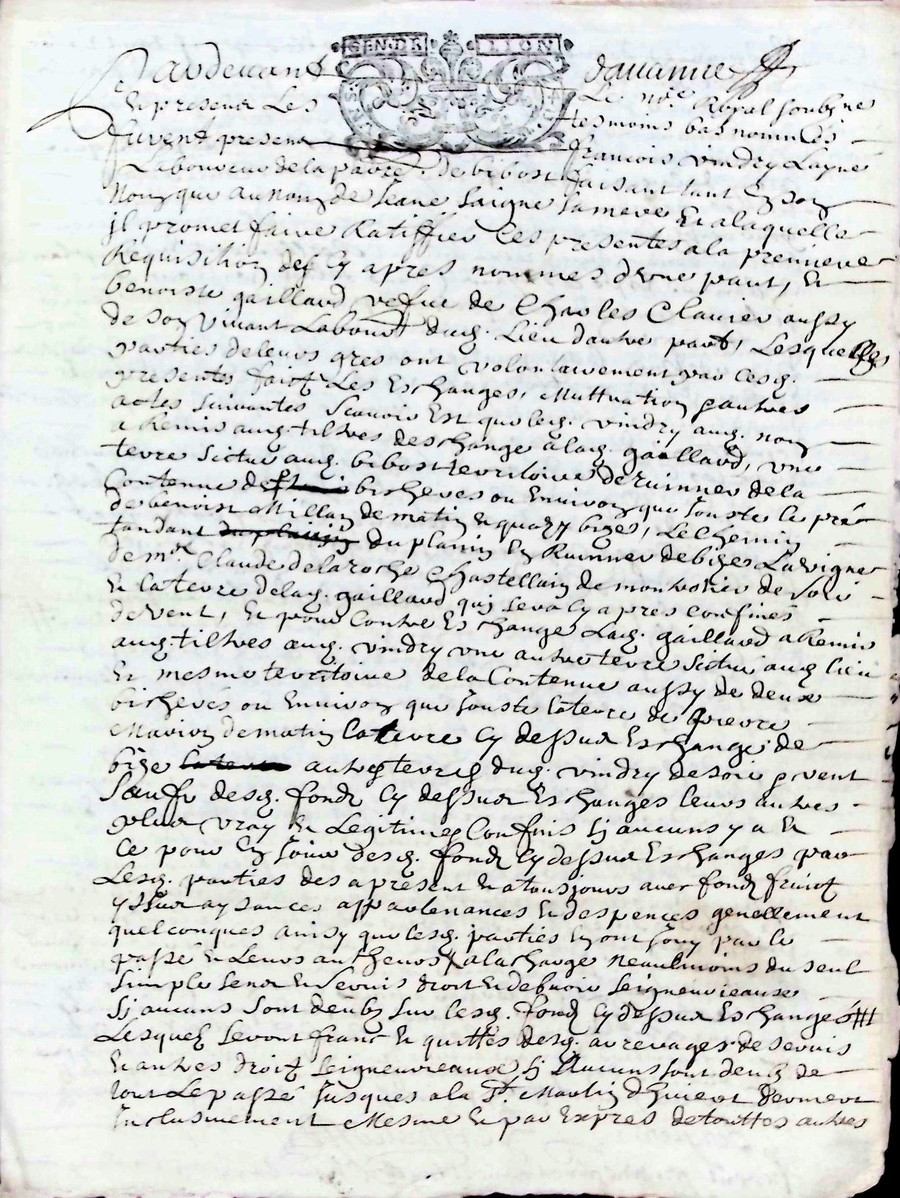 GEN. DE LION
Pardevant
Le no.re Royal soubsigné
Et presents Les tesmoins bas nommés
furent presents françois vindry Layné
Laboureur de la parre. de bibost faisant tant En son
Nom que au nom de Jeane saigne sa mere Et a laquelle
il promet faire Ratiffier Ces presentes a la premiere
Requisition des Cy apres nommés d'une part, Et
benoiste gaillard vefue de Charles Clavier aussy
de son vivant Labour.r dud. Lieu dautre part, Lesquelles
parties de leurs gres ont volontairement par cesd.
presentes faict Les Eschanges, Muttuation & autres
actes suivantes scavoir Est que led. vindry aud. nom
a Remis aud. tiltres deschange a lad. gaillard, une
terre Scitué aud. bibost territoire de ruinner de la
Contenue de bicherés ou Environ que Jouste le pré
de benoist Millan de matin Et quazy bize, Le Chemin
tandant du plaisir du planin En Ruinner de bizes La vigne
de m.re Claude de laroche Chastellain de montrotier de soir
Et la terre de lad. gaillard qui sera Cy apres Confinés
de vent, Et pour Contre Eschange Lad. gaillard a Remis
aud. tiltres aud. vindry une autre terre Scitué aud. lieu
Et mesme territoire de la Contenue aussy de deux
bicherés ou Environ que Jouste la terre de pierre
Marion de matin la terre Cy dessus Eschangé de
bize la terre autre terres dud. vindry de soir & vent
Sauf desd. fondz Cy dessus Eschanges leurs autres
plus vray Et Legitimes Confins sy aucuns y a Et
Ce pour En Jouir desd. fondz Cy dessus Eschanges par
Lesd. parties des a present Et a tousjours avec fondz fruict
yssues aysances appartenances Et despences
quelconques ainsy que lesd. parties En ont Jouy par le
passé Et Leurs autheurs a la charge Neaulmoins du seul
simple Et servis droit Et debvoir seigneurieause
sy aucuns sont deubz sur lesd. fondz Cy dessus Eschangés
Lesquelz seront franc Et quittes desd. arrerages de servis
Et autres droitz seigneureaux sy Aucuns sont deubz de
tout Le passé Jusques a la St. Martin d'hiver dernier
Inclusivement Mesme Et par Expres de touttes autres